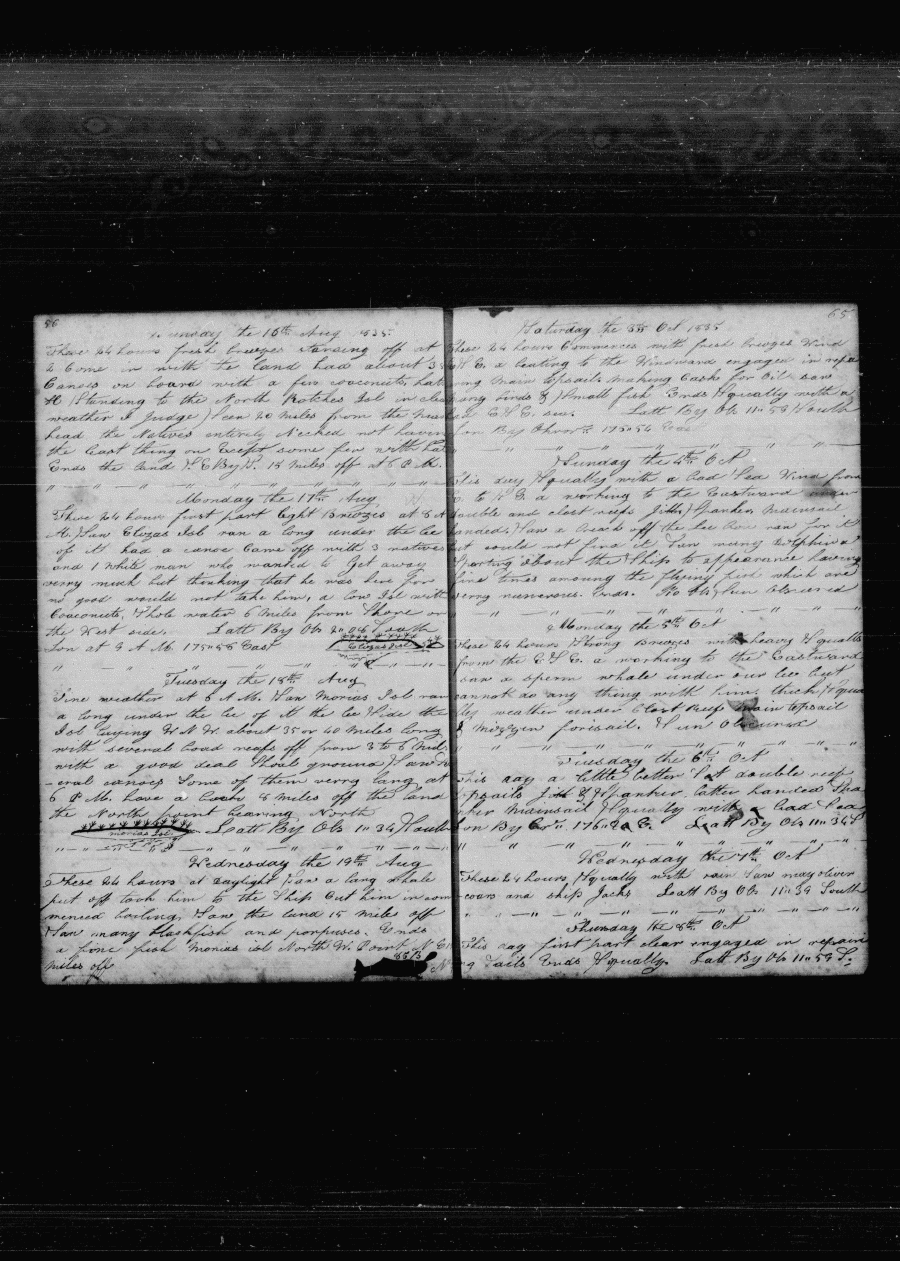 56
the 16th Aug 1835
These 24 hours fresh breezes standing off at
2 Come in with the land had about 3
Canoes on board with a few coconuts, hat
& Standing to the North Rotches Isl in clear
weather I Judge Seen 20 miles from the
head the Natives entirely Necked not haven
the East thing on Except some few with hat
Ends the land S. E By S. 18 miles off at 6 P.M.
Monday the 17th Aug
These 24 hours first part light Breezes at 5 A
M. Saw Elizas Isl ran a long under the lee
of it had a canoe Came off with 3 natives
and 1 White man who wanted to Get away
verry much but thinking that he was here for
no good would not take him, a low Isl with
Coaconuts, Shole water 6 miles from Shore on
the West side. Latt By Ob 2"06 South
Lon at 9 A M. 175"56 East
Elizas Isl
Tuesday the 18th Aug
Fine weather at 5 A.M. Saw Morias Isl ran
a long under the lee of it the lee Side the
Isl laying W N W. about 35 or 40 miles long
with several boad reefs off from 3 to 6 Mils
with a good deal Shoal ground Saw
-eral canoes Some of them verry larg at
6 P M. have a 8 miles off the land
the North point bearing North
morias Isl. Latt By Ob 1"34 South
Wednesday the 19th Aug
These 24 hours at daylight Saw a larg whale
put off took him to the Ship Cut him in com
menced boiling, Saw the land 15 miles off
Saw many blackfish and porpuses. Ends
a fine fish Morias isl North W. Point N E
miles off
65
Saturday the 3th Oct 1835
These 24 hours Commences with fresh breezes Wind
E. a beating to the Windward engaged in repa
ring Main topsail, making Casks for Oil saw
many birds & Small fish Ends Squally with a
E S E. sea. Latt By Ob 11"59 South
Lon By Chron 175"54 East
Sunday the 4th Oct
This day Squally with a bad Sea Wind from
E. to N E a working to the Eastward under
double and close reefs Jibb, Spanker, Mainsail
handed, Saw a breach off the lee Bow ran for it
but could not find it, Saw many dolphins
Sporting about the Ship to appearance having
fine times amoung the flying fish which are
verry numerous. Ends. No Ob, Sun Obscured
Monday the 5th Oct
These 24 hours Strong Breezes with heavy Squalls
from the E S E. a working to the Eastward
saw a sperm whale under our lee but
cannot do any thing with him, thick Squa
lly weather under Clost Reef main topsail
& Mizzen forisail. Sun Obscured
Tuesday the 6th Oct
This day a little better Set double reef
topsails Jibb & Spanker, latter handed Spa
nker Mainsail Squally with a bad Sea
Lon By Cro". 176"20 E. Latt By Ob 11"34 S
Wednesday the 7th Oct
These 24 hours, Squally with rain Saw
and Ship Jacks Latt By Ob 11"39 South
Thursday the 8th Oct
This day first part clear engaged in repairi
ng Sails Ends Squally. Latt By Ob 11"59 S.